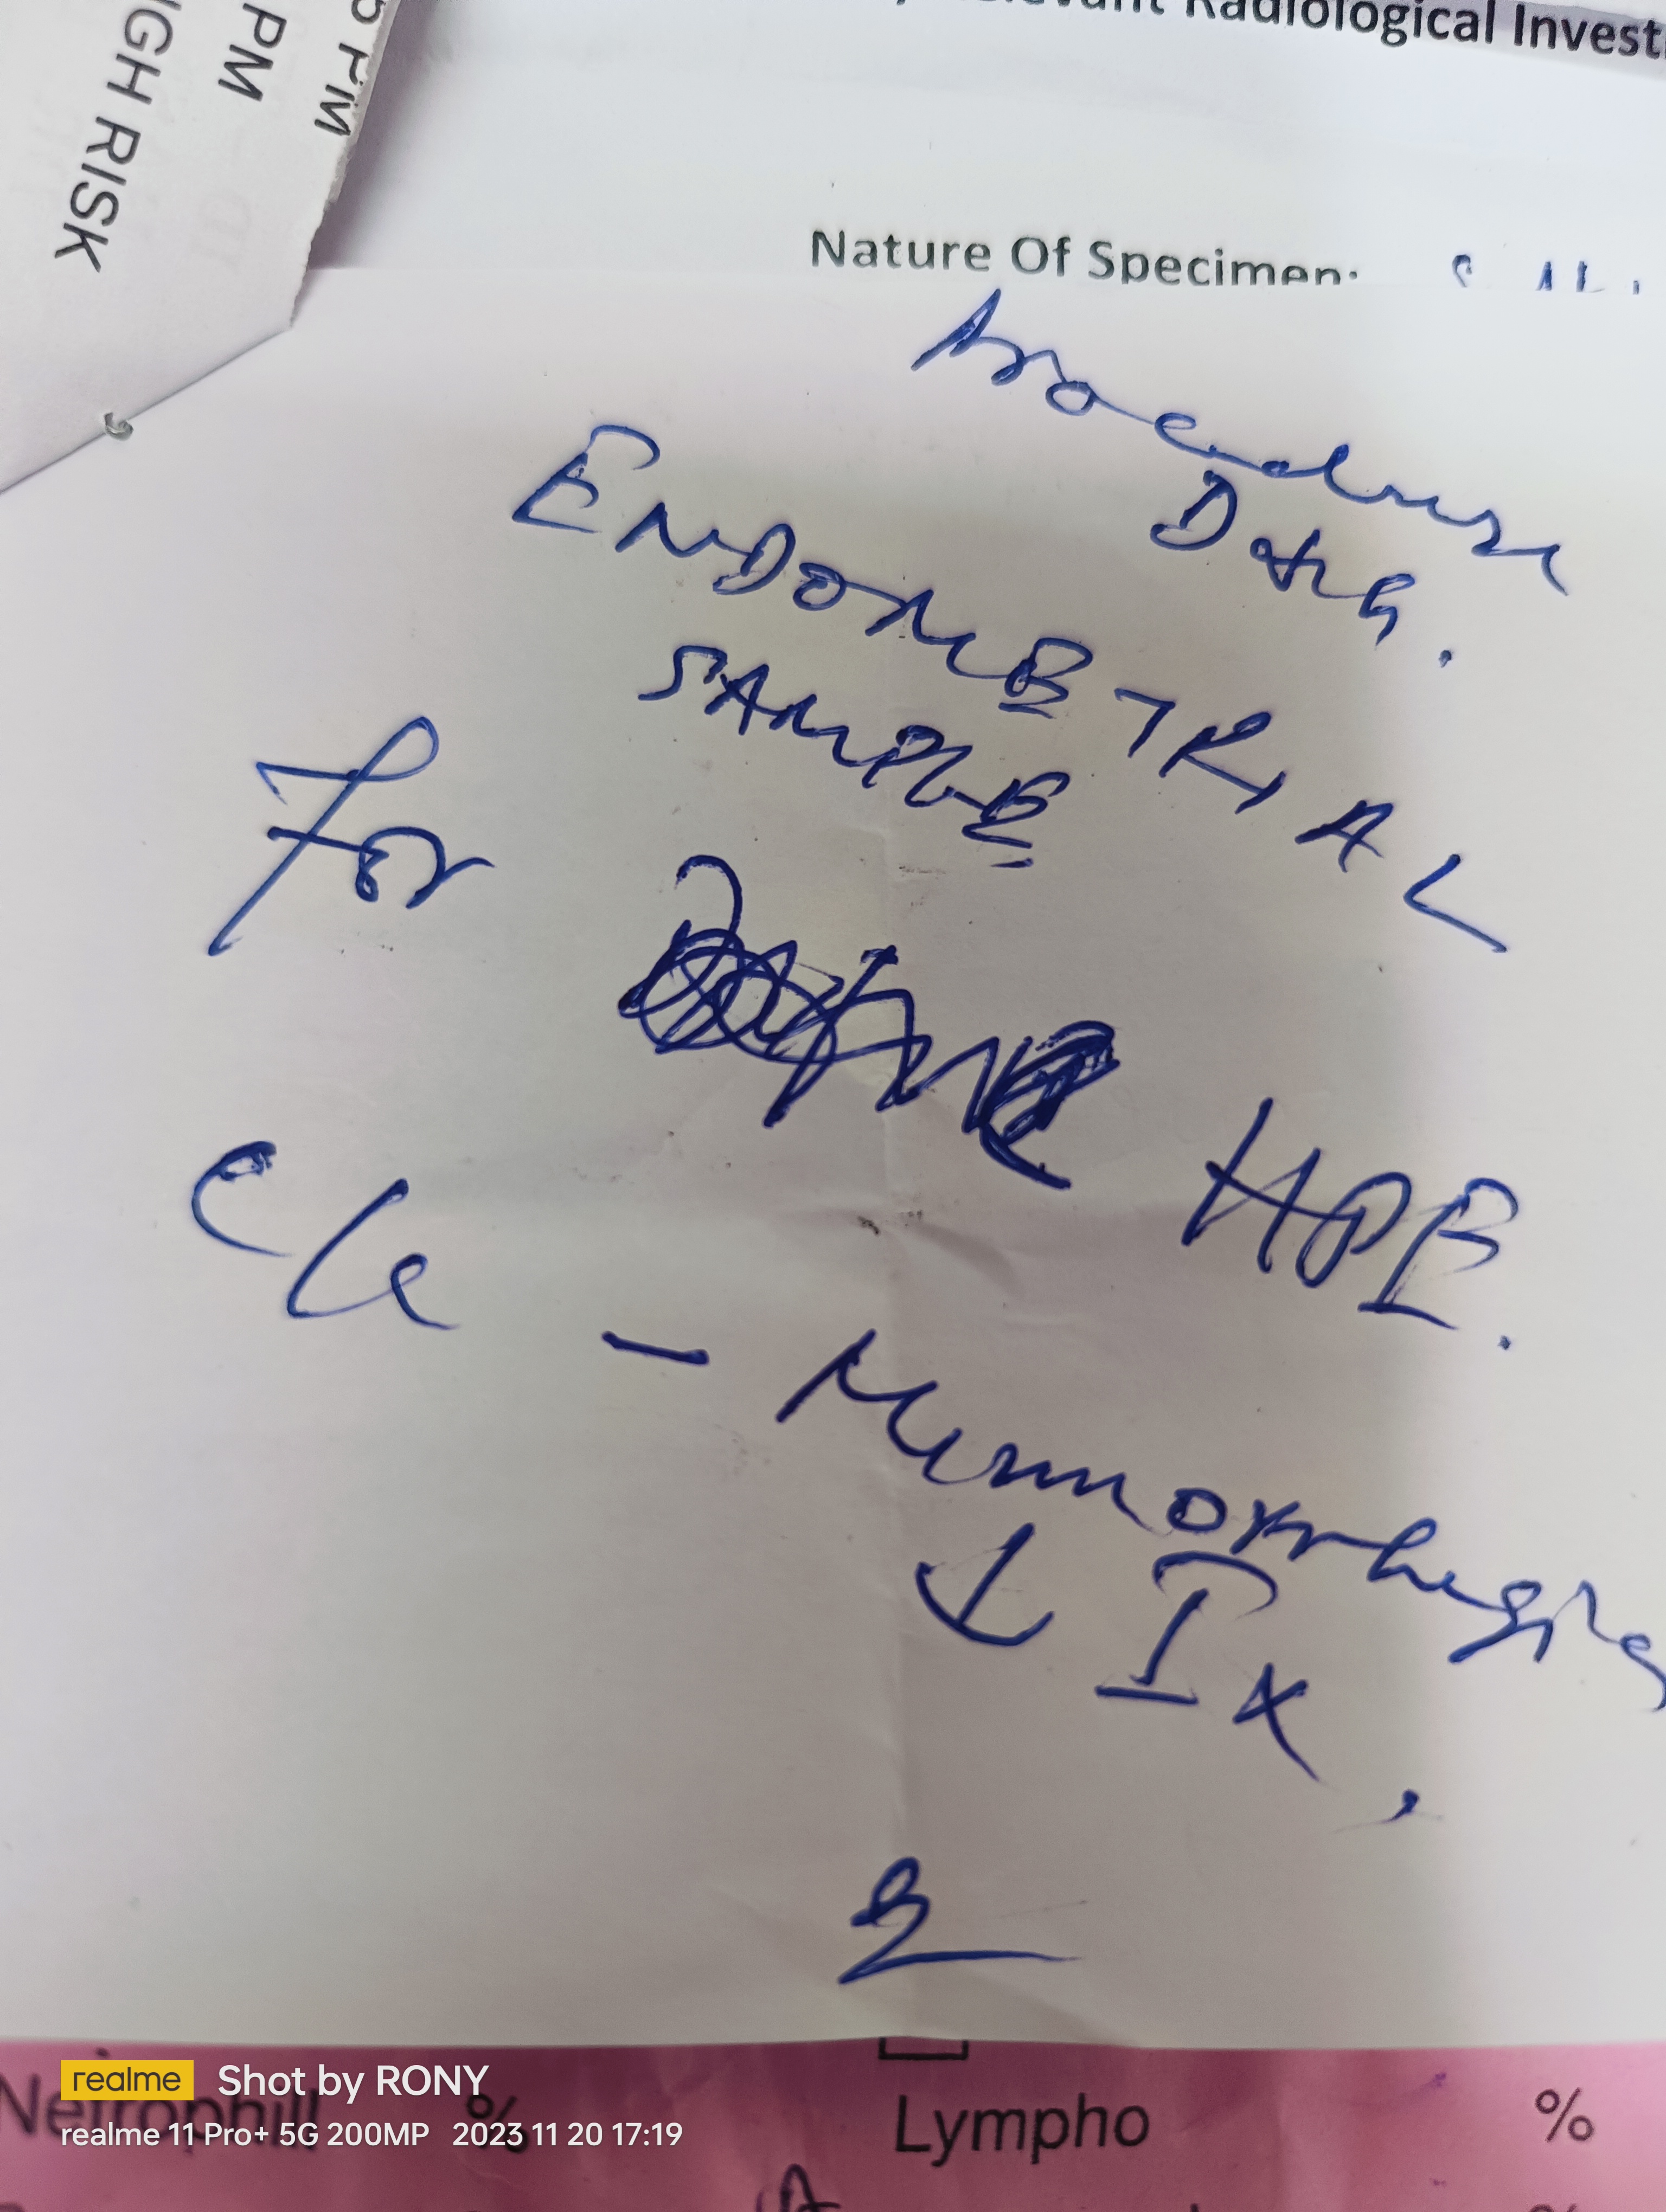 Radiological Invest
5 PM
PM
IGH RISK
Nature Of Specimen:
Procedure
Date.
ENDOMETRIAL
SAMPLE
For HPE.
C/o - Menorrhagia
↓ Ix.
Neirophill % Lympho %
realme Shot by RONY
realme 11 Pro+ 5G 200MP 2023 11 20 17:19